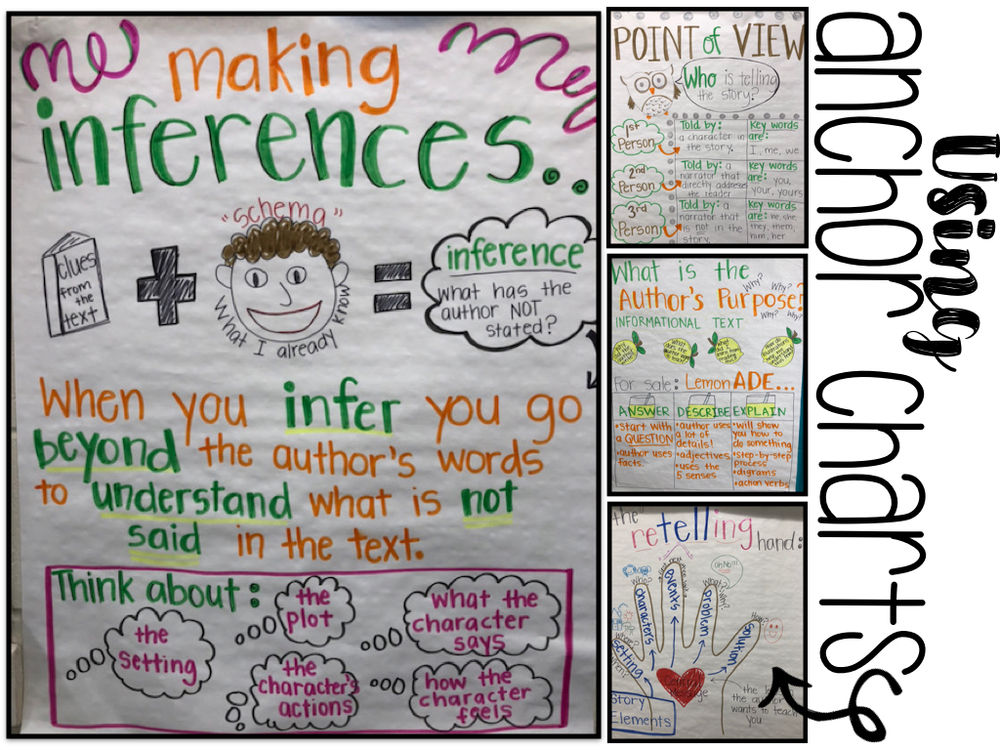 me making my
inferences..
"schema"
clues
from
the
text
What I already know
inference
what has the
author NOT
stated?
When you infer you go
beyond the author's words
to understand what is not
said in the text.
Think about:
the
setting
the
plot
what the
character
says
the
character's
actions
how the
character
feels
POINT of VIEW
Who is telling
the story?
1st
Person
Told by:
a character in
the story.
Key words
are:
I, me, we
2nd
Person
Told by: a
narrator that
directly addresses
the reader
Key words
are: you,
your, yours
3rd
Person
Told by: a
narrator that
is not in the
story.
Key words
are: he, she,
they, them,
him, her
What is the
Why? Why?
Author's Purpose?
Why? Why?
INFORMATIONAL TEXT
For sale: LemonADE...
ANSWER
•start with
a QUESTION
•author uses
facts.
DESCRIBE
•author uses
a lot of
details!
•adjectives
•uses the
5 senses
EXPLAIN
•will show
you how to
do something
•step-by-step
process
•digrams
•action verbs
the retelling hand:
Oh No!!!
Who?
What?
Why?
How?
characters
events
problem
solution
setting
Where?
When?
Story
Elements
the
the author
wants to teach
you
Using
anchor charts